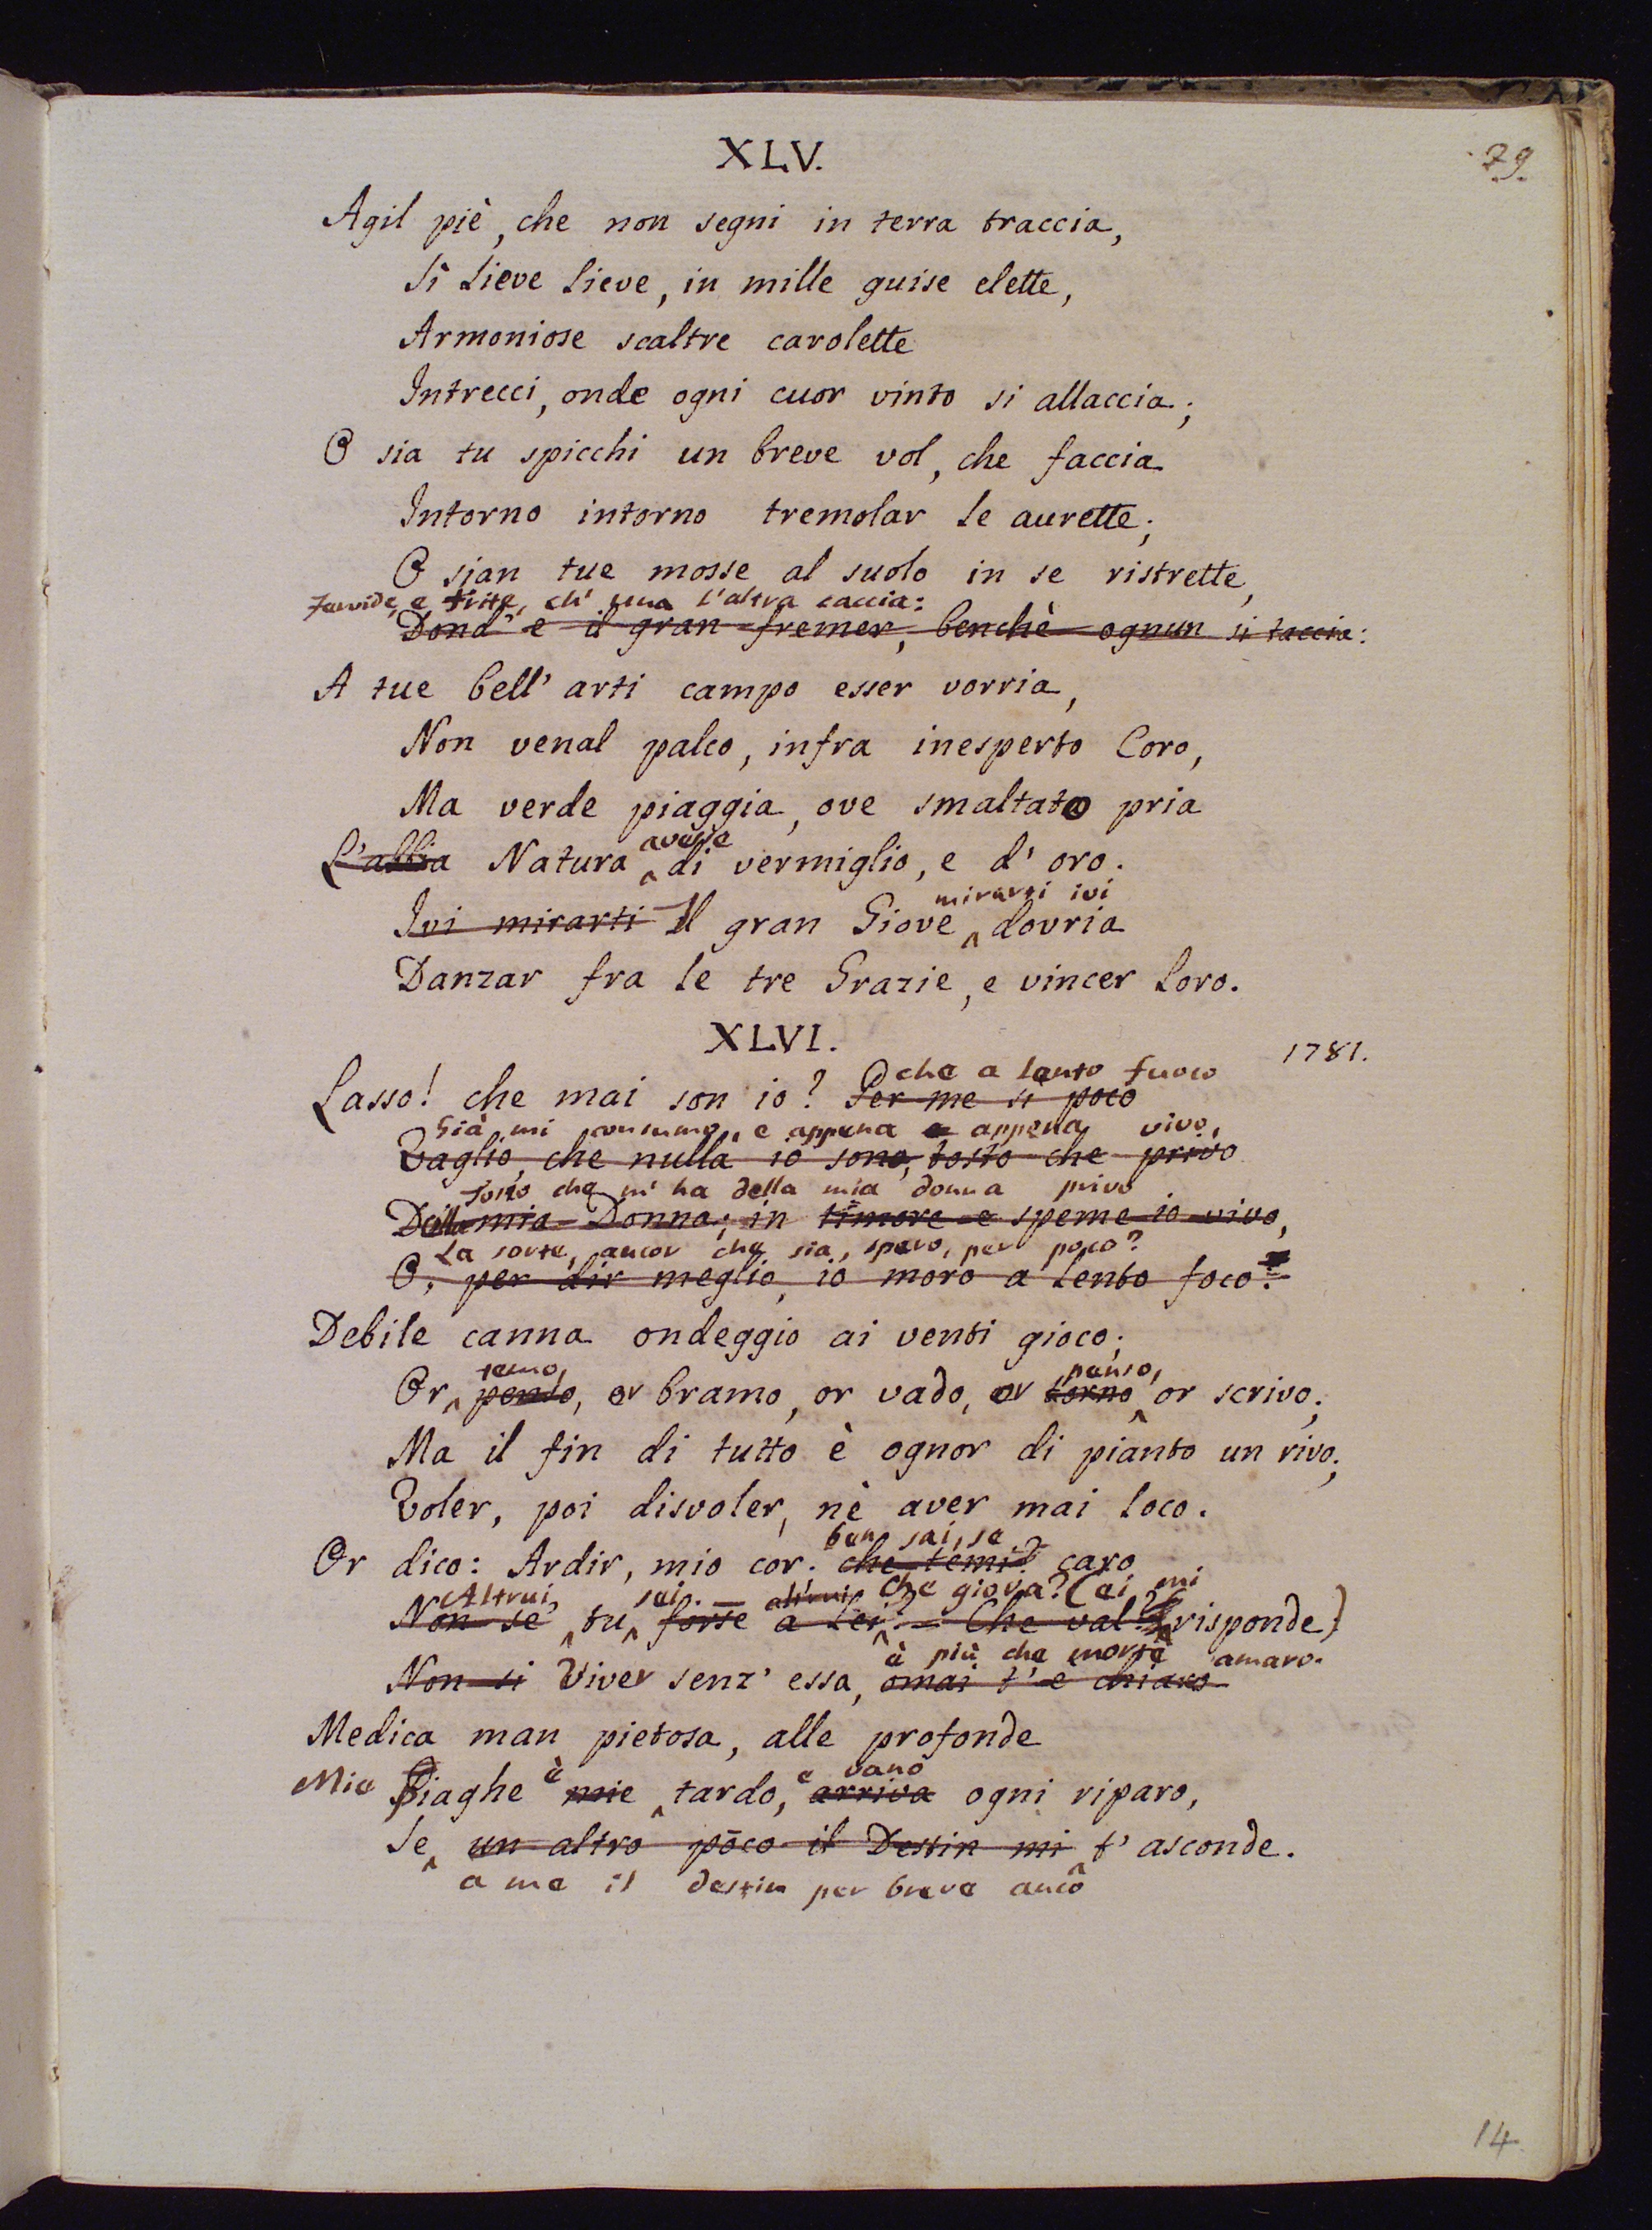 XLV.
79.
Agil piè, che non segni in terra traccia,
Sì lieve lieve, in mille guise elette,
Armoniose scaltre carolette
Intrecci, onde ogni cuor vinto si allaccia;
O sia tu spicchi un breve vol, che faccia
Intorno intorno tremolar le aurette;
O sian tue mosse al suolo in se ristrette,
Fervide, e fitte, ch' una l'altra caccia:
Dond' è il gran fremer, benchè ognun si taccia:
A tue bell' arti campo esser vorria,
Non venal palco, infra inesperto Coro,
Ma verde piaggia, ove smaltato pria
avesse
L'abbia Natura di vermiglio, e d' oro.
mirarti ivi
Ivi mirarti Il gran Giove dovria
Danzar fra le tre Grazie, e vincer loro.
XLVI.
1781.
che a lento fuoco
Lasso! che mai son io? Per me sì poco
Già mi consumo, e appena appena vivo,
Vaglio, che nulla io sono, tosto che privo
Tosto che m' ha della mia donna privo
Della mia Donna; in timore e speme io vivo,
La sorte, ancor che sia, spero, per poco?
O, per dir meglio, io moro a lento foco?
Debile canna ondeggio ai venti gioco;
temo, penso,
Or penso, or bramo, or vado, or torno or scrivo;
Ma il fin di tutto è ognor di pianto un rivo;
Voler, poi disvoler, nè aver mai loco.
ben sai, se
Or dico: Ardir, mio cor. che temi? caro
Altrui, sei. altrui Che giova? (ei mi
Non se' tu forse a lei? Che val? risponde)
è più che morte amaro.
Non si Viver senz' essa, omai t' è chiaro
Medica man pietosa, alle profonde
è e vano
Mie Piaghe mie tardo, arriva ogni riparo,
Se un altro pòco il Destin mi t' asconde.
a me il destin per breve anco
14